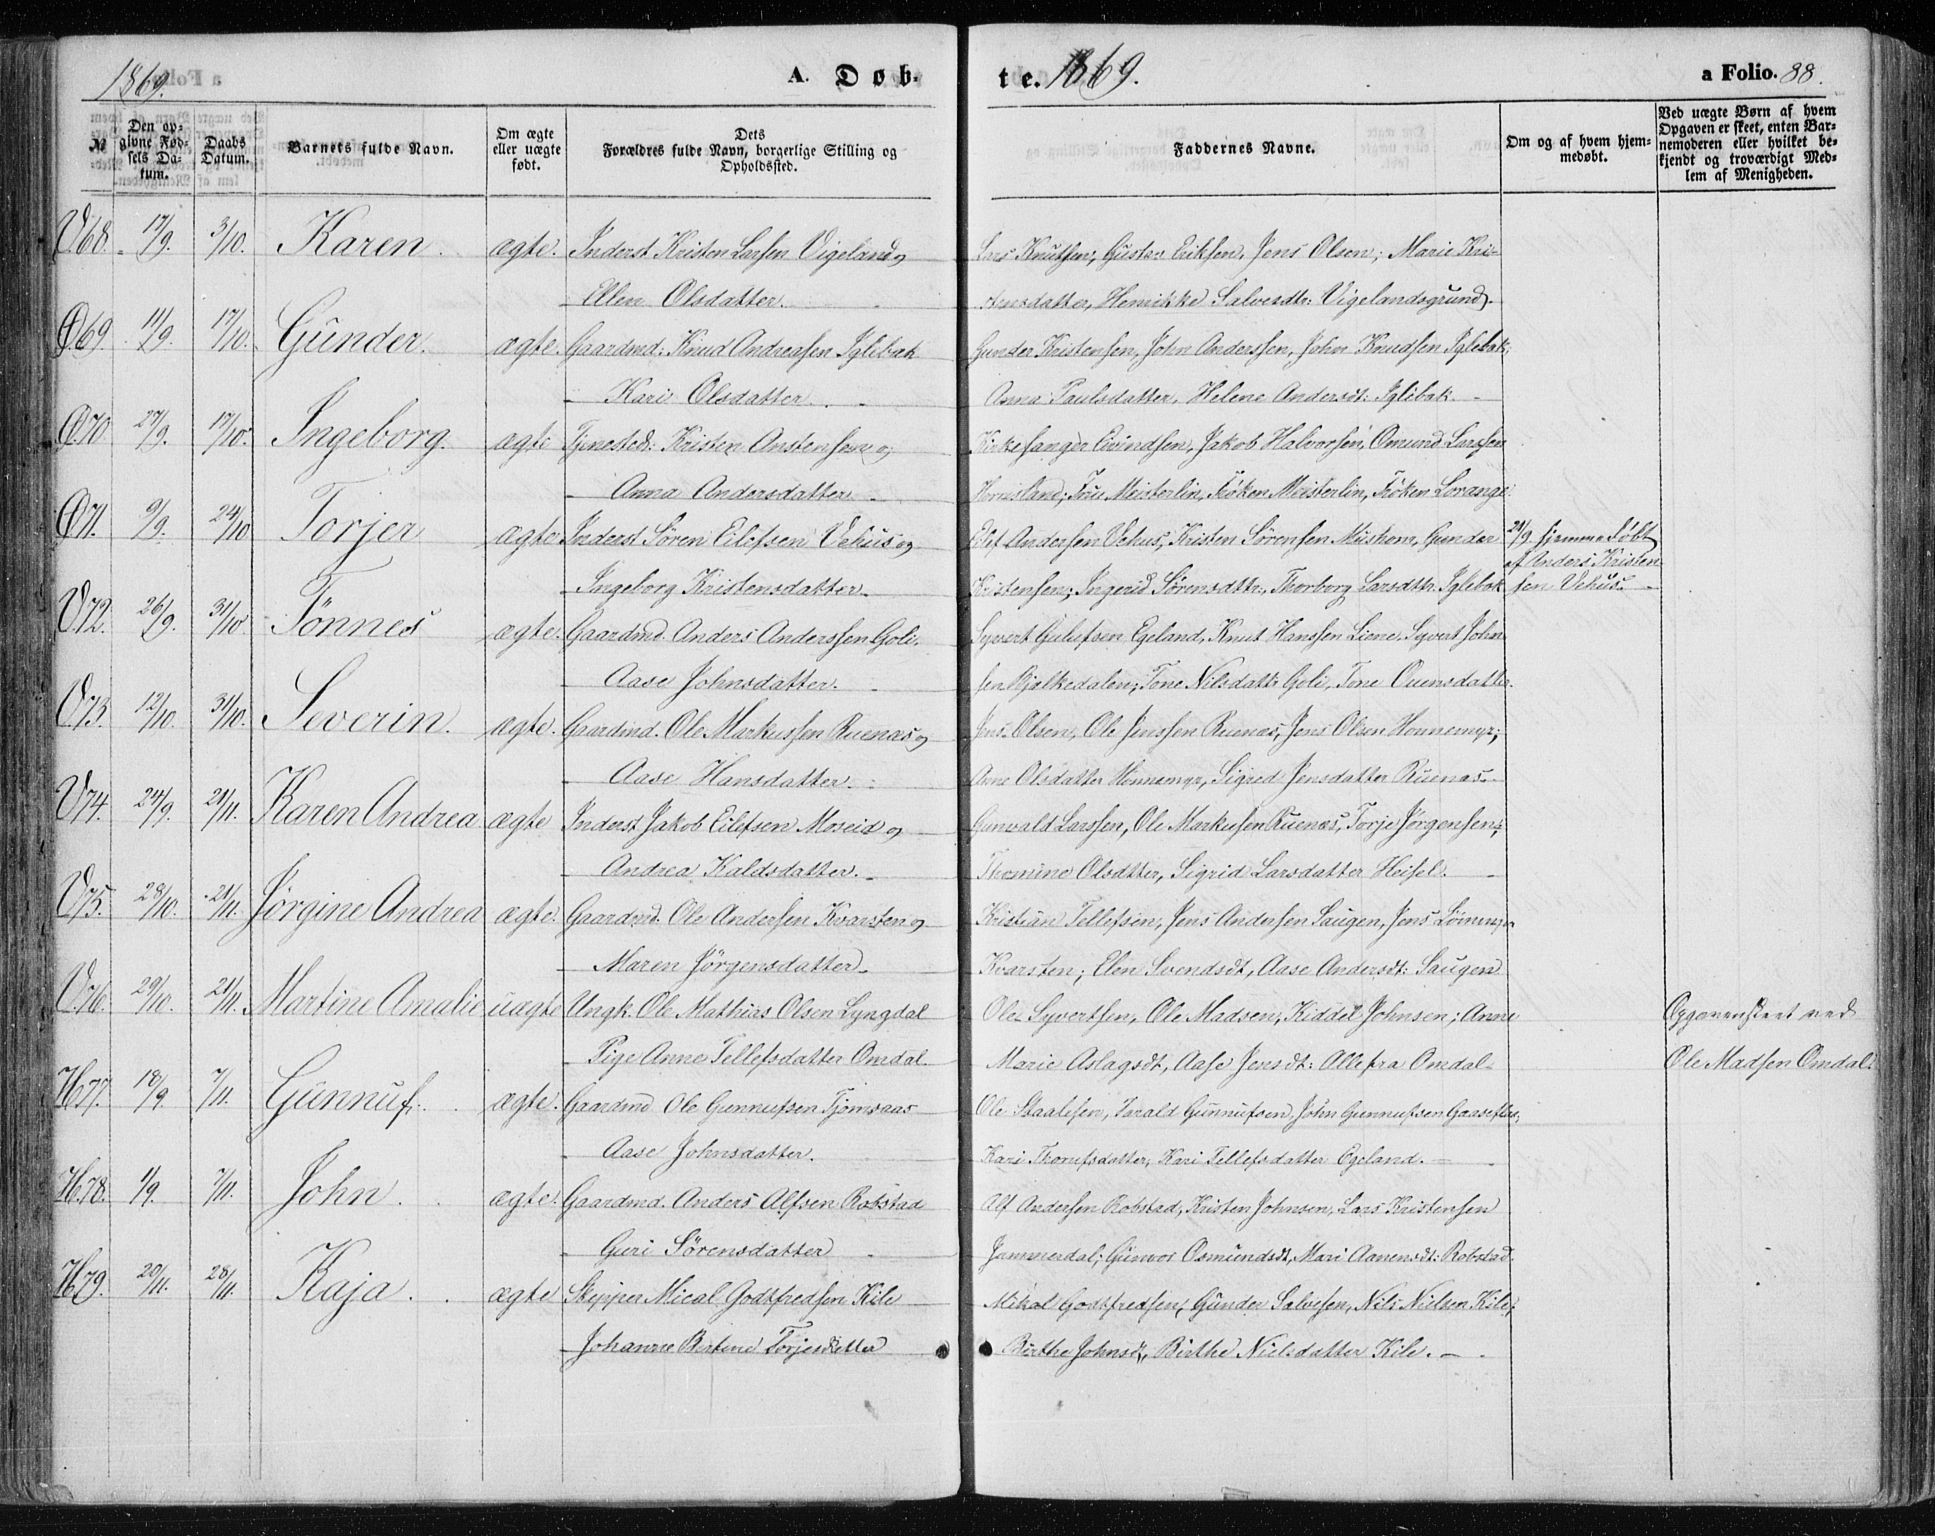 1869. A. Døb-
№ Den opgivne Fødsels Datum. Daabs Datum. Barnets fulde Navn. Om ægte eller uægte født. Dets Forældres fulde Navn, borgerlige Stilling og Opholdssted.
V68. 17/9. 3/10. Karen. ægte. Inderst Kristen Larsen Vigeland og
Ellen Olsdatter.
Ø69. 11/9. 17/10. Gunder. ægte. Gaardmd: Knud Andreasen Iglebæk
Kari Olsdatter.
Ø70 27/9. 17/10. Ingeborg. ægte Tjenested: Kristen Anstensen og
Anna Andersdatter.
Ø71. 9/9. 24/10 Torjer ægte Inderst Sören Eilefsen Vehus og
Ingeborg Kristensdatter.
V72. 26/9. 31/10. Tönnes ægte. Gaardmd. Anders Anderssen Goli.
Aase Johnsdatter.
V73. 12/10. 31/10. Severin. ægte. Gaardmd. Ole Markussen Ruenæs og
Aase Hansdatter.
V74. 24/9. 21/11. Karen Andrea ægte Inderst Jakob Eilefsen Moseid og
Andrea Kaldsdatter.
V75. 28/10. 21/11. Jørgine Andrea ægte. Gaardmd. Ole Andersen Kvarsten og
Maren Jörgensdatter.
V76. 29/10. 21/11. Martine Amalie uægte Ungk. Ole Mathias Olsen Lyngdal
Pige Anne Tellefsdatter Omdal.
H77. 18/9. 7/11. Gunnuf. ægte. Gaardmd Ole Gunnufsen Tjomsaas
Aase Johnsdatter.
H78. 1/9. 7/11. John. ægte. Gaardmd. Anders Alfsen Robstad
Guri Sörensdatter
H79. 20/11. 28/11. Kaja. ægte Skipper Mical Godtfredsen Kile
Johanne Bertine Torjesdatter
te. 1869. a Folio. 88.
Faddernes Navne. Om og af hvem hjemmedøbt. Ved uægte Børn af hvem Opgaven er skeet, enten Barnemoderen eller hvilket bekjendt og troværdigt Medlem af Menigheden.
Lars Knutsen, Gustav Eriksen, Jens Olsen; Marie Kri-
stensdatter, Henrikke Salvesdtr: Vigelandsgrund.
Gunder Kristensen, John Anderssen, John Knudsen Iglebæk;
Anna Paulsdatter, Helene Andersdt: Iglebæk.
Kirkesanger Eivindsen, Jakob Halvorsen, Omund Larssen
Hornesland; Fru Meisterlin, Fröken Meisterlin, Fröken Lorange
Eilef Andersen Vehus, Kristen Sörensen Mushom, Gunder 21/9. hjemmedöbt
Kristensen; Ingerid Sörensdttr., Thorborg Larsdttr. Iglebæk af Anders Kristensen Vehus.
Syvert Gulufsen Egeland, Knut Hanssen Liene, Syvert John-
sen Bjelkedalen; Tone Nilsdattr Goli, Tone Ouensdatter.
Jens Olsen, Ole Jenssen Ruenæs, Jens Olsen Honnemyr;
Anne Olsdatter Honnemyr, Sigred Jensdatter Ruenæs.
Gunvald Larssen, Ole Markusen Ruenæs, Torje Jörgensen;
Thomine Olsdtter, Sigrid Larsdatter Heisel.
Kristian Tellefsen, Jens Andersen Saugen, Jens
Kvarsten; Elen Svendsdt, Aase Andersdt: Saugen
Ole Syvertsen, Ole Madsen, Kiddel Johnsen; Anne Opgaven skeet ved
Marie Aslagsdt, Aase Jensdt: Alle fra Omdal. Ole Madsen Omdal.
Ole Staalesen, Tarald Gunnufsen, John Gunnufsen Gaaseflaa,
Kari Thorufsdatter, Kari Tellefsdatter Egeland.
Alf Andersen Robstad, Kristen Johnsen, Lars Kristensen
Jammerdal; Gunvor Osmundsdt, Mari Aanensdt: Robstad.
Mikal Godtfredsen, Gunder Salvesen, Nils Nielsen Kile;
Birthe Johnsdt, Birthe Nielsdatter Kile.